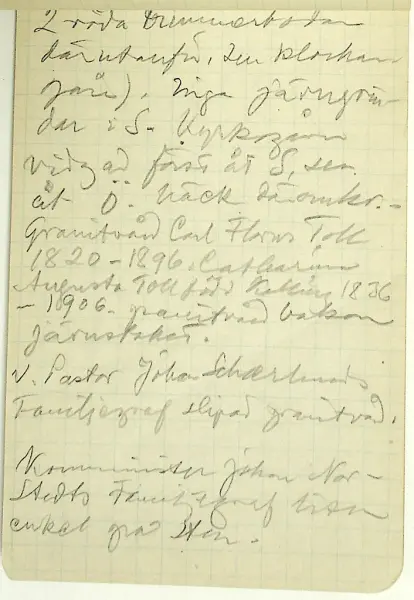 2 röda timmerbodar
därutanför, den klockan
järn). Inga järngrin-
dar i S. Kyrkogårn
vidgad först åt S, sen
åt Ö. Häck däromkr.-
Granitvård Carl Florus Toll
1820-1896, Catharina
Augusta Toll född 1836
- 1906. granitvård bakom
järnstaket.
v. Pastor Johan
Familjegraf slipad granitvård.
Komminister Johan Nor-
stedts Familjegraf liten
enkel grå sten.